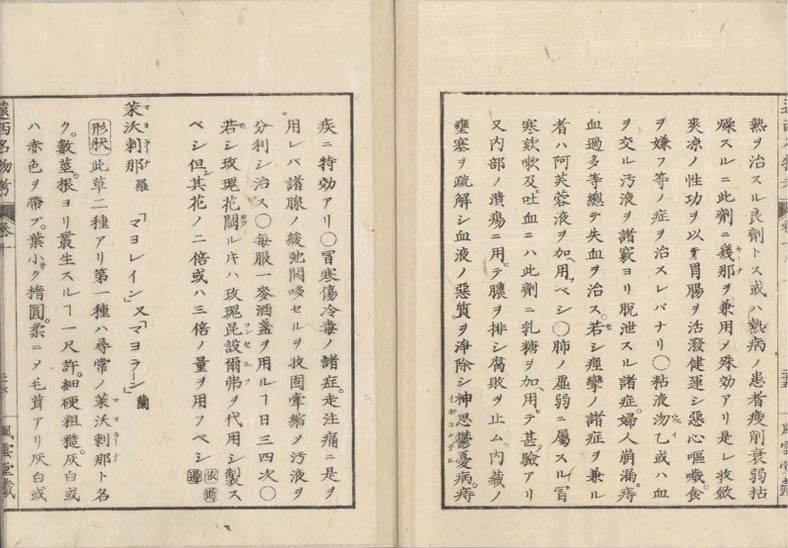 熱ヲ治スル良劑トス或ハ熱病ノ患者瘦削衰弱枯
燥スルニ此劑ニ幾那ヲ兼用メ殊効アリ是レ收斂
爽凉ノ性功ヲ以テ胃腸ヲ活潑健運シ惡心嘔噦食
ヲ嫌フ等ノ症ヲ治スレバナリ〇粘液沕乙或ハ血
ヲ交ル汚液ヲ諸竅ヨリ脱泄スル諸症。婦人崩漏。痔
血過多等總テ失血ヲ治ス。若シ痙攣ノ諸症ヲ兼ル
者ハ阿芙蓉液ヲ加用スベシ〇肺ノ虚弱ニ屬スル冒
寒欬嗽及吐血ニハ此劑ニ乳糖ヲ加用メ甚驗アリ
又内部ノ潰瘍ニ用テ膿ヲ排シ腐敗ヲ止ム。内藏ノ
壅塞ヲ疏解シ血液ノ惡質ヲ淨除シ神思鬱憂病。痔
疾ニ特効アリ〇冒寒傷冷毒ノ諸症。走注痛ニ是ヲ
用レバ諸腺ノ緩弛闊哆セルヲ收固牽縮メ汚液ヲ
分利シ治ス〇每服一麥酒盞ヲ用ルヿ日三四次〇
若シ玫瑰花闕ルキハ玫瑰昆設爾弗ヲ代用シ製ス
ベシ但シ其花ノ二倍或ハ三倍ノ量ヲ用フベシ
茉沃剌那 羅 「マヨレイン」又「マヨラーン」蘭
形狀 此草二種アリ第一種ハ尋常ノ茉沃剌那ト名
ク。數莖。根ヨリ叢生スルヿ一尺許。細硬粗糙。灰白或
ハ赤色ヲ帶ブ。葉小ク橢圓。柔ニメ毛茸アリ灰白或
遠西名物考 卷一 風雲堂藏